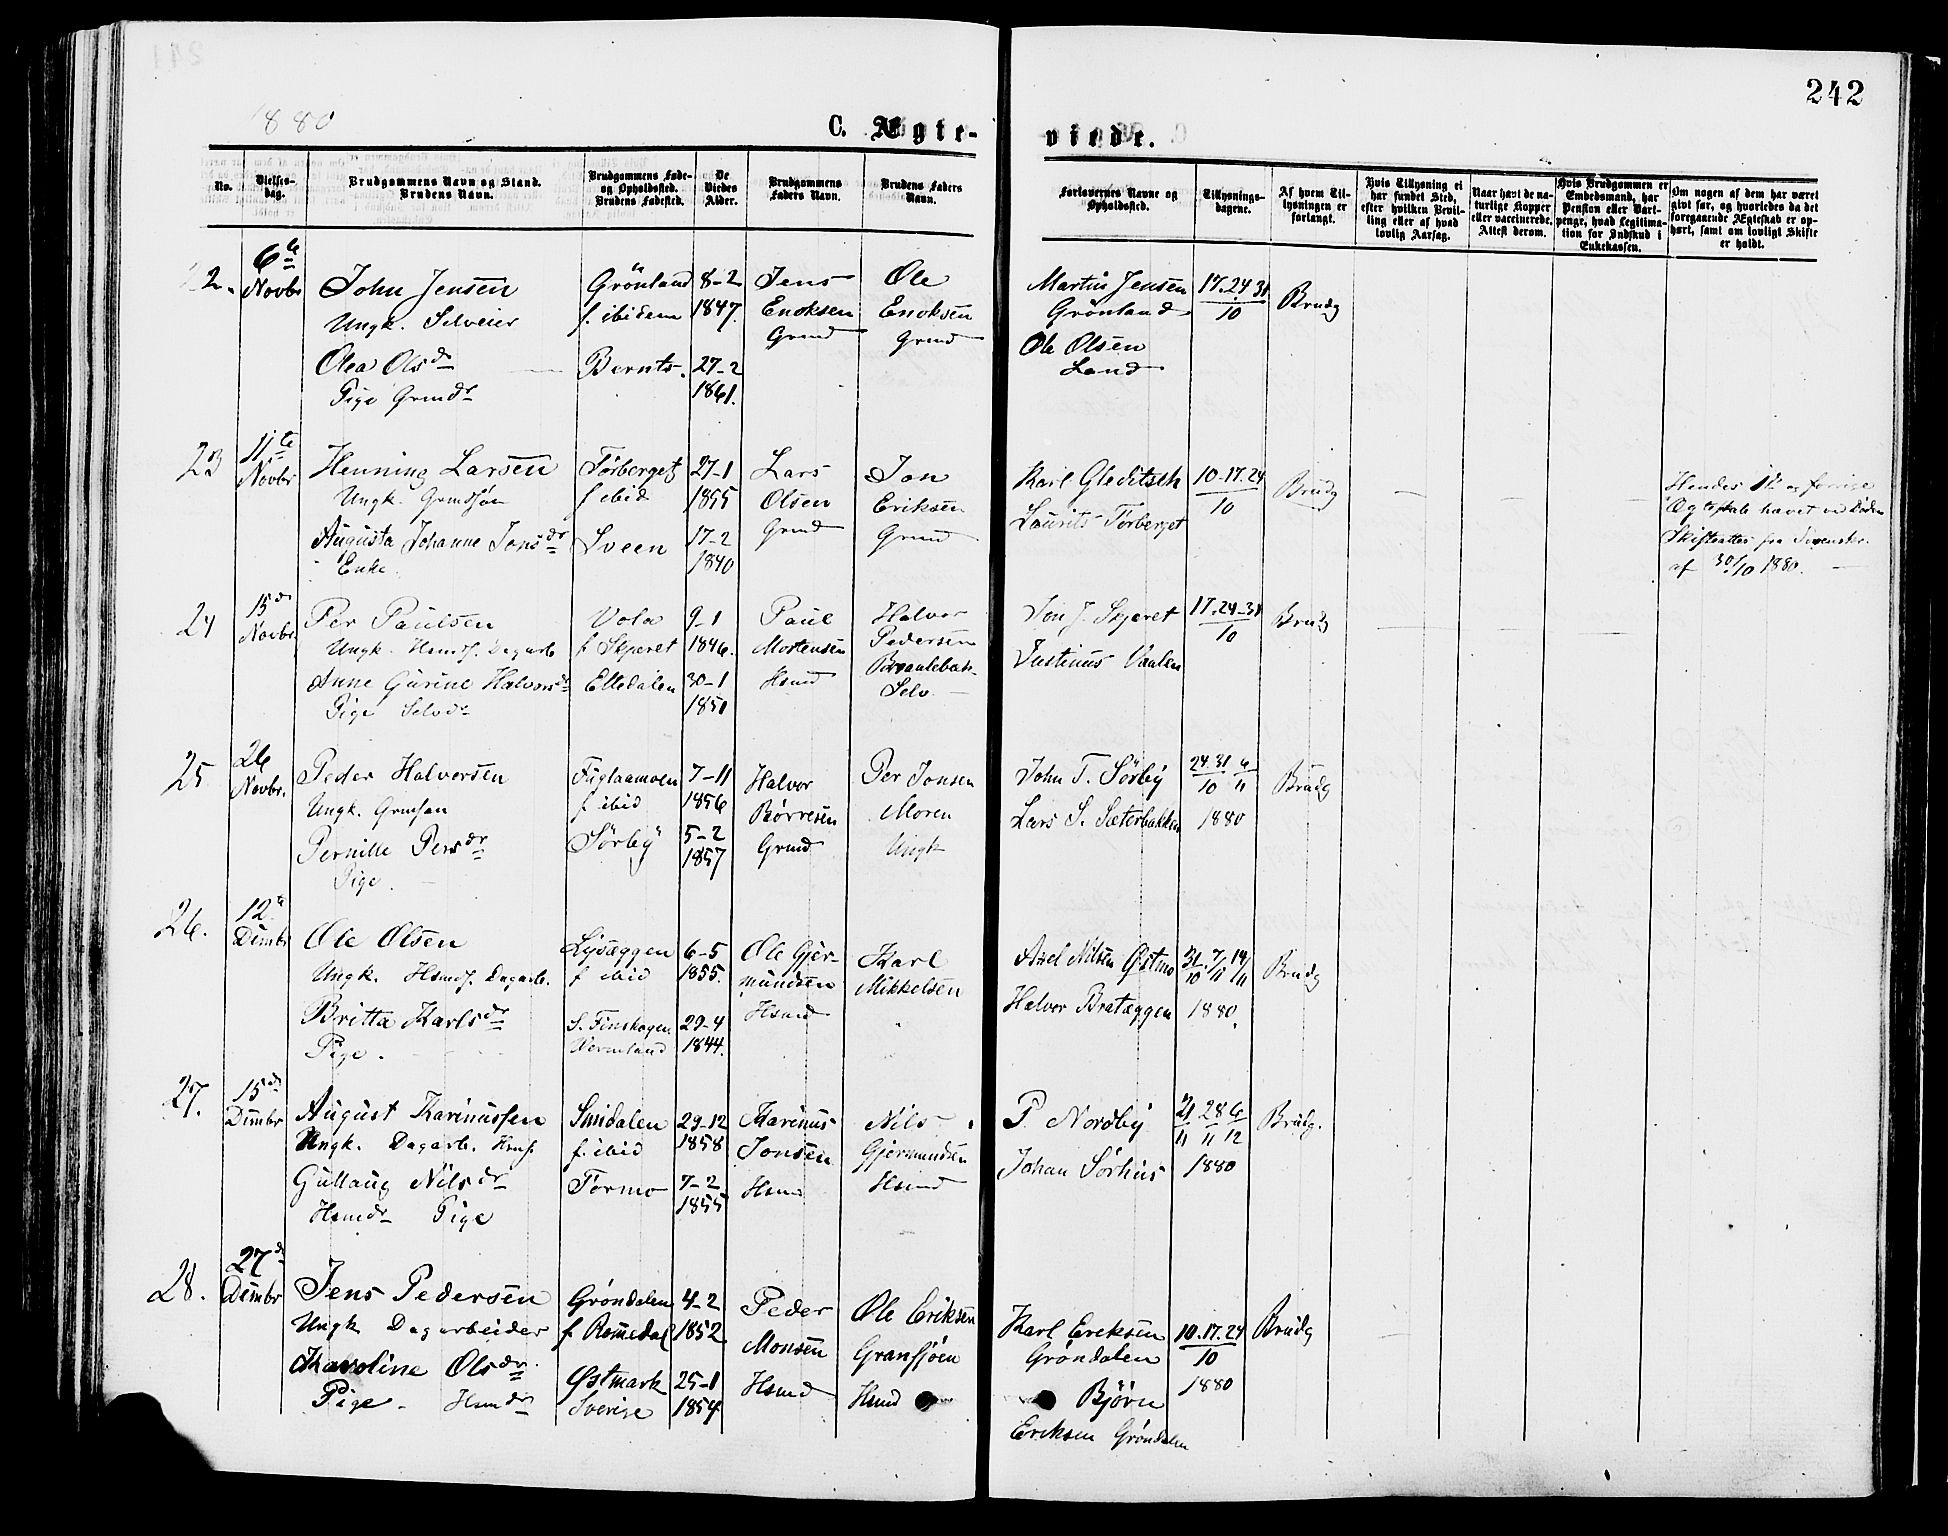 242
1880
C. Ægte-
viede.
No.
Vielses-
dag.
Brudgommens Navn og Stand.
Brudens Navn.
Brudgommens Føde-
og Opholdssted.
Brudens Fødested.
De
Viedes
Alder.
Brudgommens
Faders Navn.
Brudens Faders
Navn.
Forlovernes Navne og
Opholdssted.
Tillysnings-
dagene.
Af hvem Til-
lysningen er
forlangt.
Hvis Tillysning ei
har fundet Sted,
efter hvilken Bevil-
ling eller af hvad
lovlig Aarsag.
Naar havt de na-
turlige Kopper
eller vaccinerede.
Attest derom.
Hvis Brudgommen er
Embedsmand, har
Pension eller Vart-
penge, hvad Legitima-
tion for Indskud i
Enkekassen.
Om nogen af dem har været
gift før, og hvorledes da det
foregaaende Ægteskab er op-
hørt, samt om lovligt Skifte
er holdt.
2.
6te
Novbr
John Jensen
Ungk. Selveier
Olea Olsdr
Pige Grmdr
Grönland
f. ibidem
Bernts.
8-2
1847.
27-2
1861.
Jens
Enoksen
Grmd
Ole
Enoksen
Grmd
Martin Jensen
Grönland
Ole Olsen
Land
17.24 31
10
Brudg
23
11te
Novbr
Henning Larsen
Ungk. Grmdsøn
Augusta Johanne Jonsdr
Enke.
Törberget
f ibid
Sveen
27-1
1855
17-2
1840
Lars
Olsen
Grmd
Jon
Eriksen
Grmd
Karl Gleditsch
Laurits Törberget
10-17.24
10
Brudg
Hendes 1te og forrige
Ægteskab hævet ved Döden
Skifteattest fra Sorenskr.
af 30/10 1880.
24
15de
Novbr.
Per Paulsen
Ungk. Hsmds. Dagarb
Anne Gurine Halvorsdr
Pige Selvdr
Vola
f Skjæret
Elledalen
9-1
1846.
30-1
1850
Paul
Mortensen
Hsmd
Halvor
Pedersen
Selv.
Jon J. Skjæret
Justinus Vaalen
17.24-31
10
Brudg
25
26
Novbr.
Peder Halvorsen
Ungk. Grmsøn
Pernille Persdr
Pige.
Fuglaamoen
f. ibid
Sörby
7-11
1856
5-2
1857
Halvor
Börresen
Grmd
Per Jonsen
Moren
Ungk
John T. Sörby
Lars S. Sæterbakken
24 31 6
10 11
1880
Brudg
26.
12te
Dcmbr
Ole Olsen
Ungk. Hsmds. Dagarb.
Britta Karlsdr
Pige.
Lysæggen
f ibid
S. Finskogen
Vermland
6-5
1855.
29-4
1844.
Ole Gjer-
mundsen
Hsmd
Karl
Mikkelsen
Axel Nilsen Østmo
Halvor Bratæggen
31/10 7/11 14/11
1880.
Brudg
27.
15de
Dcmbr
August Karinussen
Ungk. Dagarb. Hmss.
Gullaug Nilsdr
Hsmdr Pige
Smidalen
f. ibid
Tørmo
29-12
1858
7-2
1855
Karinus
Jonsen
Hsmd
Nils
Gjermundsen
Hsmd
P. Nordby
Johan Sörhus
21 28 6
11 11 12
1880
Brudg.
28.
27de
Dcmbr
Jens Pedersen
Ungk Dagarbeider
Karoline Olsdr.
Pige. Hsmdr
Gröndalen
f. Romedal
Østmark
Sverige
4-2
1852
25-1
1854
Peder
Monsen
Hsmd
Ole Eriksen
Gransjöen
Hsmd
Karl Ereksen
Gröndalen
Björn
Ereksen Gröndalen
10.17.24
10
1880
Brudg